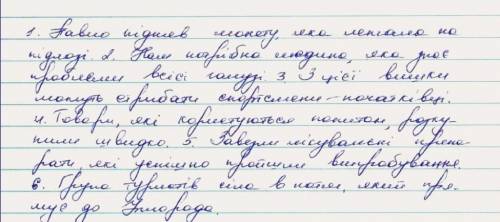 1. Павло підняв монету, яка лежала на
підлозі. 2. Нам потрібна людина, яка знає
проблеми всієї галузі 3. З цієї вишки
можуть стрибати спортсмени-початківці.
4. Товари, які користуються попитом, розку-
пили швидко. 5. Завезли лікувальні препа-
рати, які успішно пройшли випробування.
6. Група туристів сіла в потяг, який пря-
мує до Ужгорода.